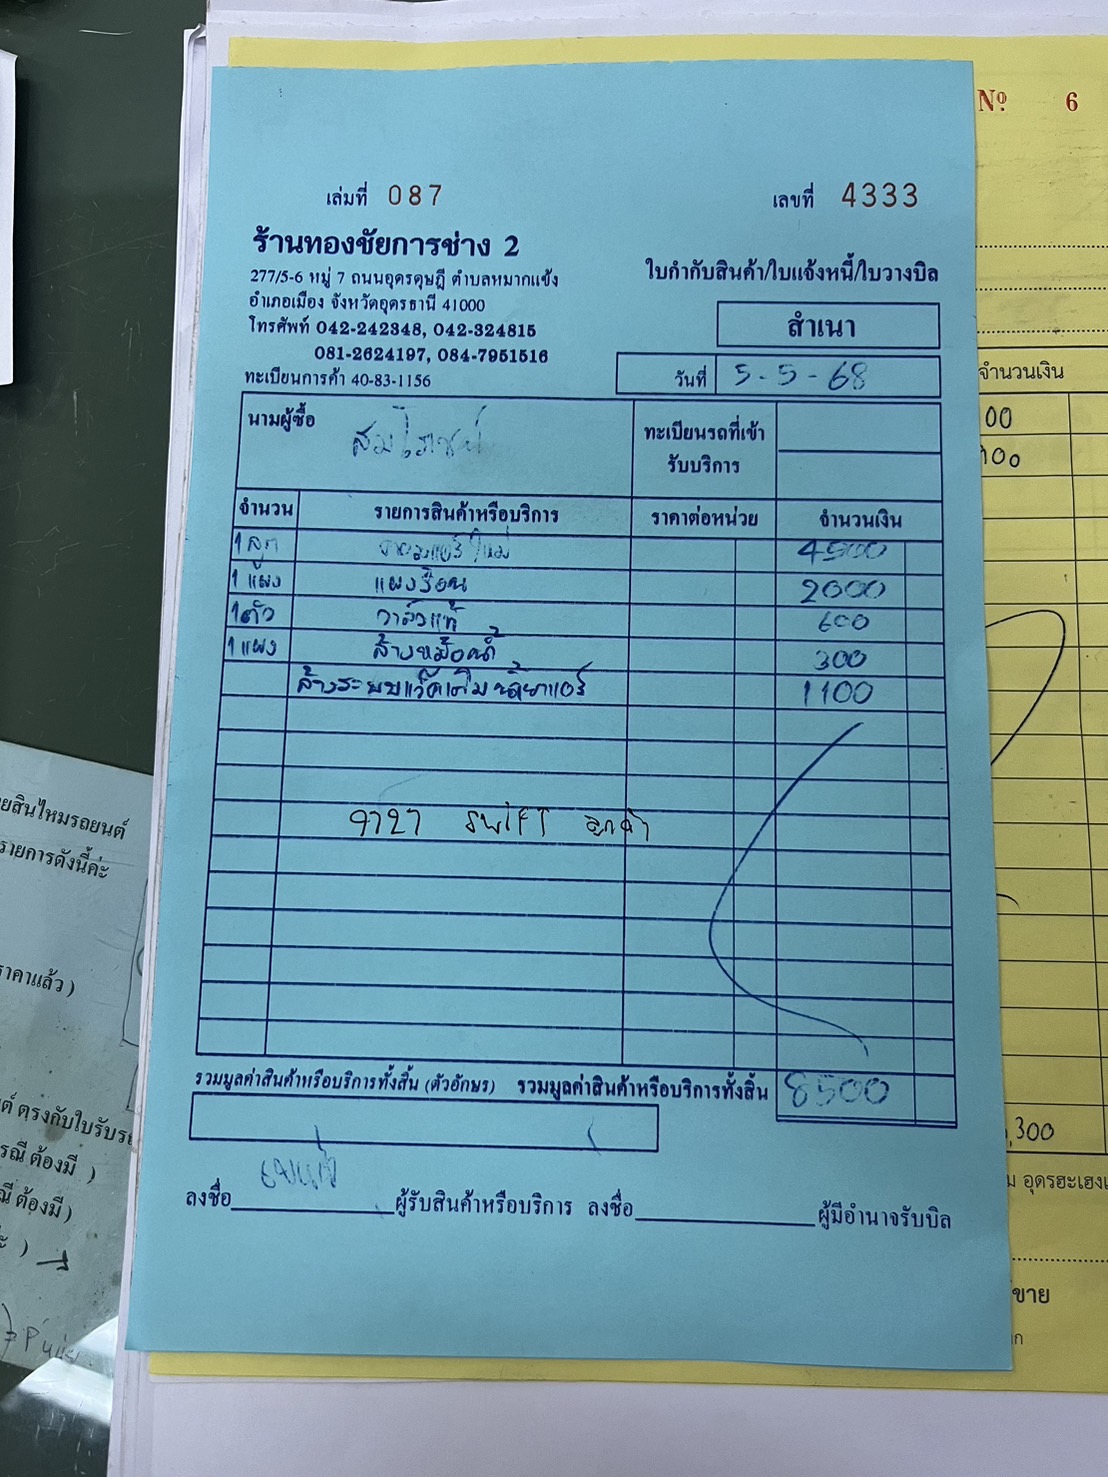 เล่มที่ 087
เลขที่ 4333
ร้านทองชัยการช่าง 2
277/5-6 หมู่ 7 ถนนอุดรดุษฎี ตำบลหมากแข้ง
อำเภอเมือง จังหวัดอุดรธานี 41000
โทรศัพท์ 042-242348, 042-324815
081-2624197, 084-7951516
ทะเบียนการค้า 40-83-1156
ใบกำกับสินค้า/ใบแจ้งหนี้/ใบวางบิล
สำเนา
วันที่ 5-5-68
นามผู้ซื้อ
ทะเบียนรถที่เข้า
รับบริการ
จำนวน รายการสินค้าหรือบริการ ราคาต่อหน่วย จำนวนเงิน
1 ลูก คอมแอร์ใหม่ 4500
1 แผง แผงร้อน 2000
1 ตัว วาล์วแท้ 600
1 แผง ล้างหม้อน้ำ 300
ล้างระบบแว็คเติมน้ำยาแอร์ 1100
SWIFT ลูกค้า
รวมมูลค่าสินค้าหรือบริการทั้งสิ้น (ตัวอักษร) รวมมูลค่าสินค้าหรือบริการทั้งสิ้น 8500
ลงชื่อ ผู้รับสินค้าหรือบริการ ลงชื่อ ผู้มีอำนาจรับบิล
Nº 6
จำนวนเงิน
00
100
,300
ม อุดรฮะเฮง
ขาย
ยสินไหมรถยนต์
รายการดังนี้ค่ะ
ราคาแล้ว )
ต์ ตรงกับใบรับร
รณี ต้องมี )
ณี ต้องมี )